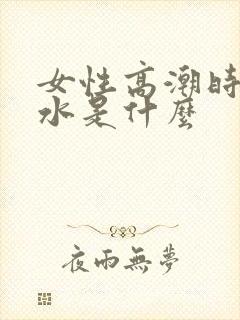 女性高潮時
水是什麼
夜雨無夢